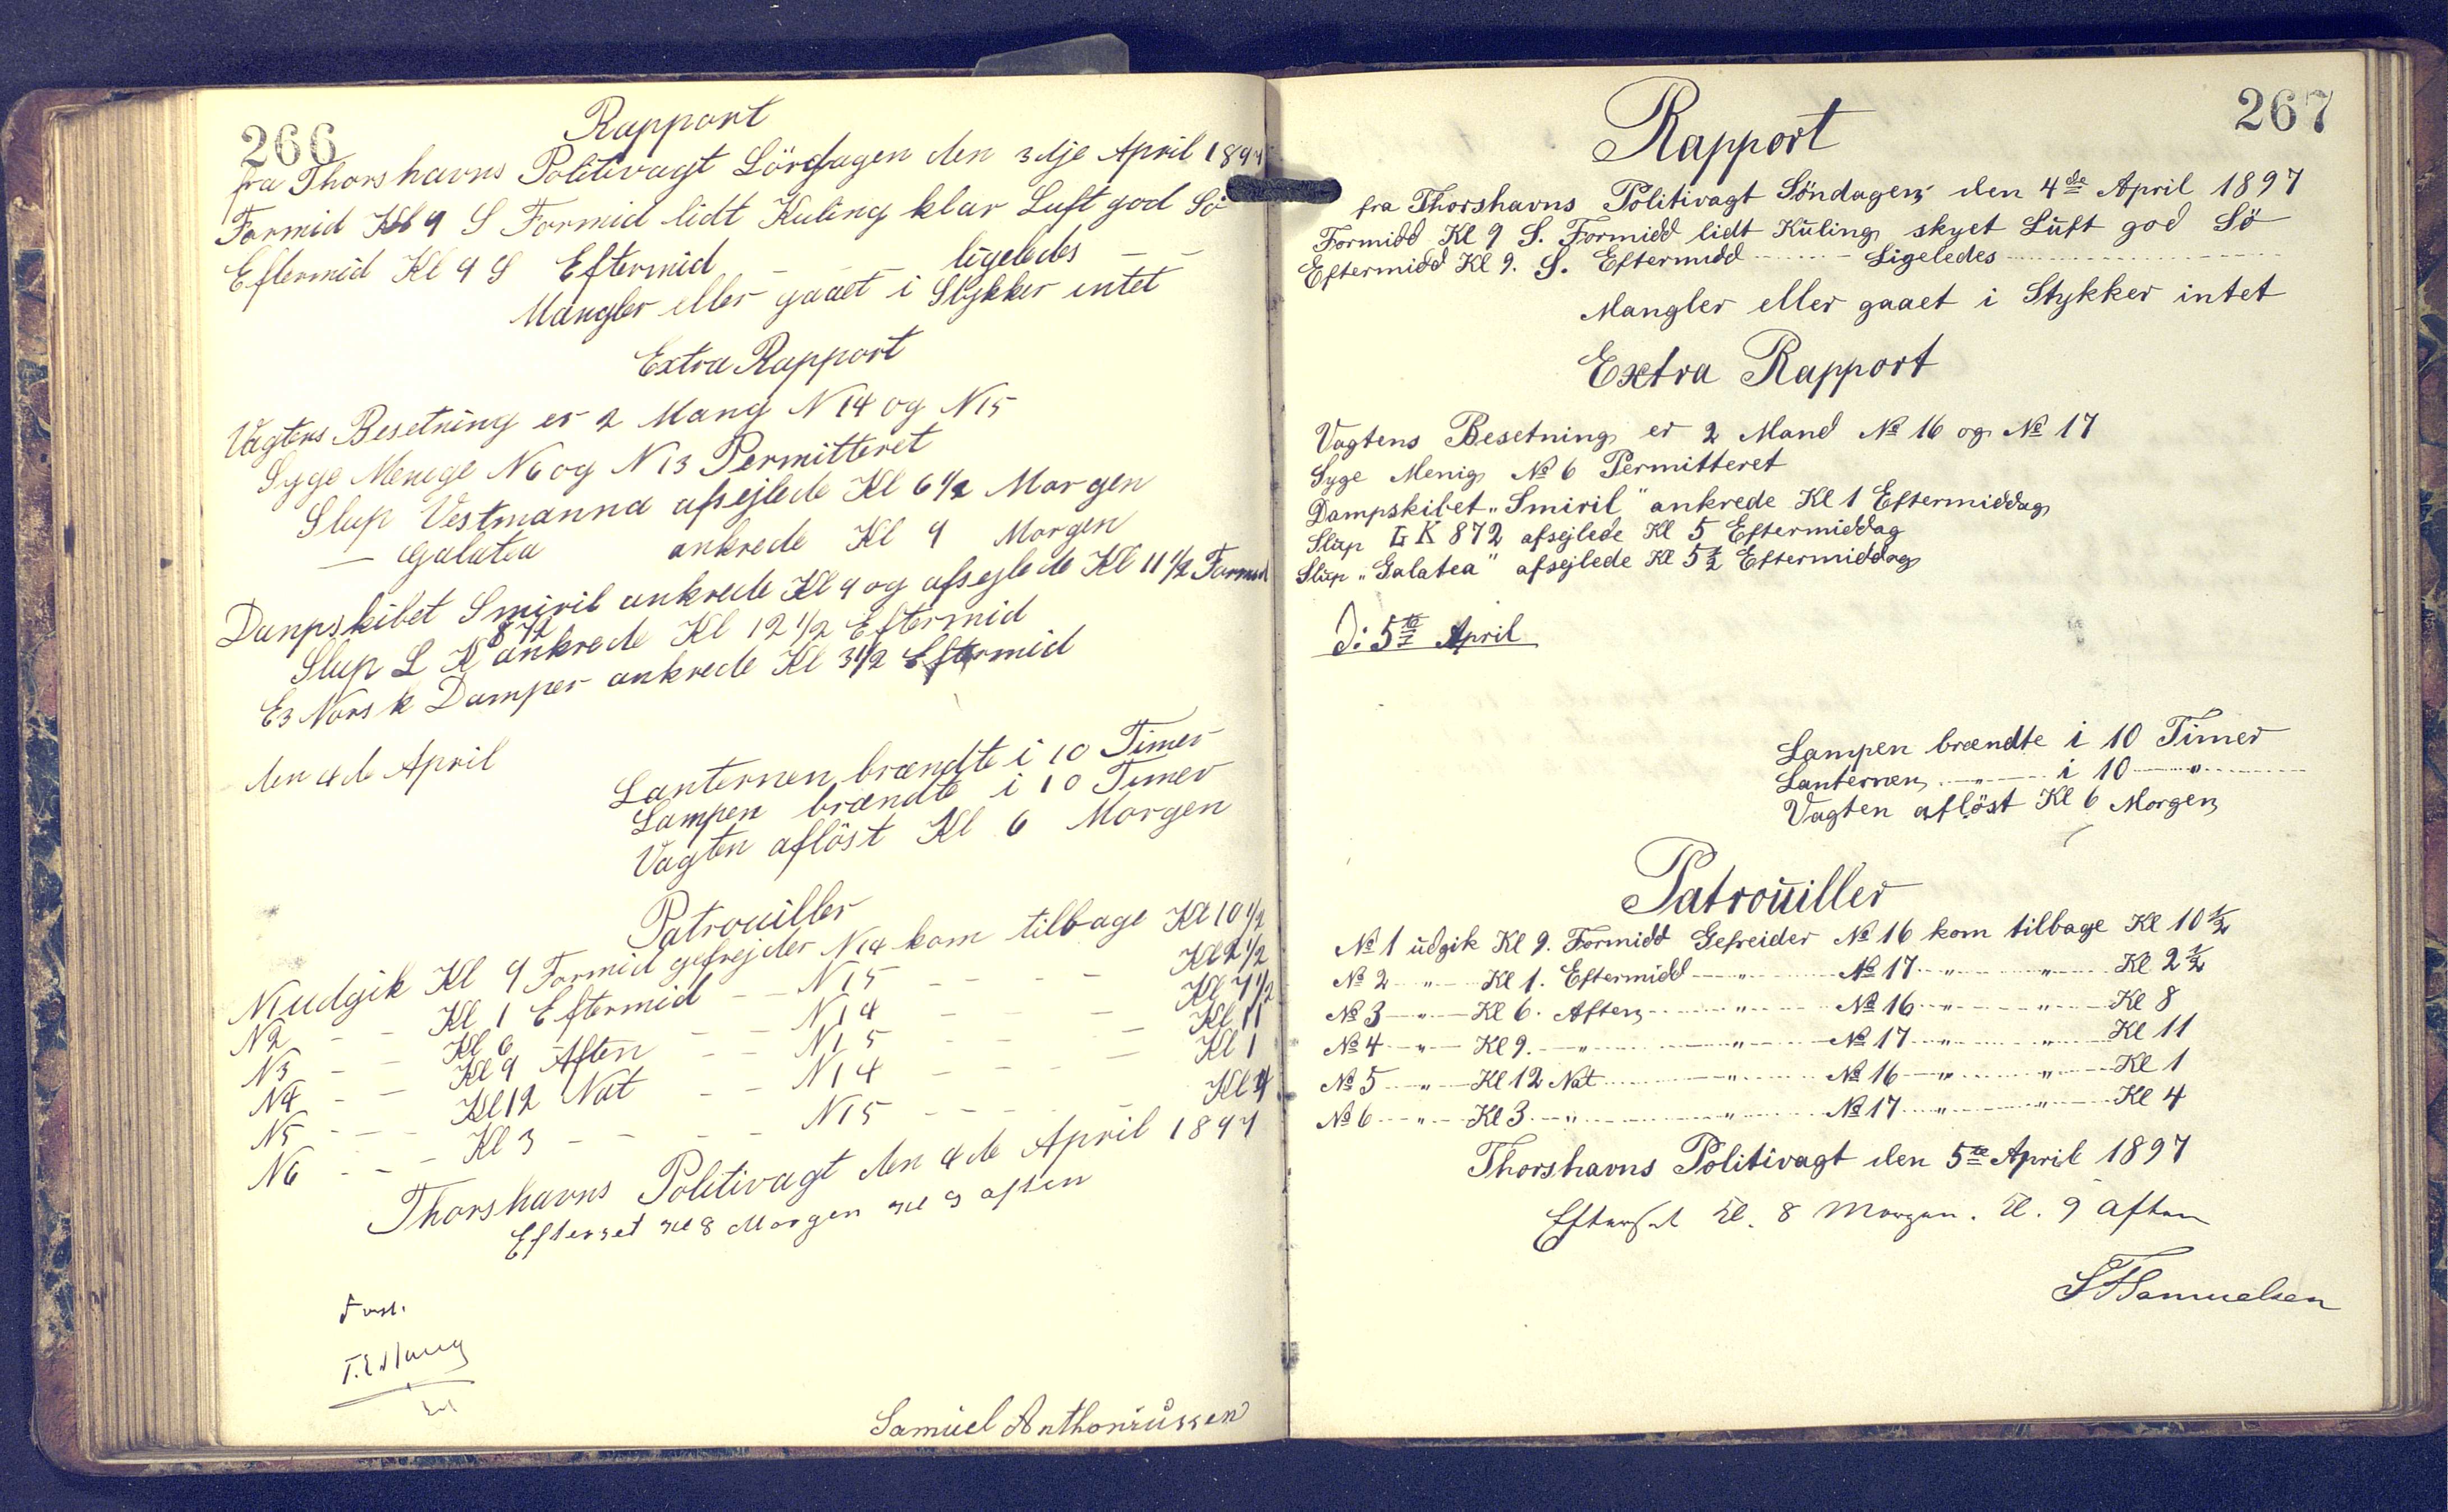 266
Rapport
fra Thorshavns Politivagt Lördagen den 3dje April 1897
Formid Kl 9 S Formid lidt Kuling klar Luft god Sö
Eftermid Kl 9 S Eftermid - - - ligeledes - -
Mangler eller gaaet i Stykker intet
Extra Rapport
Vagtens Besetning er 2 Mang N14 og N15
Syge Menige N6 og N13 Permitteret
Slup Vestmanna afsejlede Kl 6 1/2 Morgen
— Galatea ankrede Kl 9 Morgen
Dampskibet Smiril ankrede Kl 9 og afsejlede Kl 11 1/2 Formid
Slup L K 872 ankrede Kl 12 1/2 Eftermid
En Norsk Damper ankrede Kl 3 1/2 Eftermid
den 4de April
Lanternen brændte i 10 Timer
Lampen brændte i 10 Timer
Vagten aflöst Kl 6 Morgen
Patrouiller
N1 udgik Kl 9 Formid gefrejder N14 kom tilbage Kl 10 1/2
N2 - - Kl 1 Eftermid - - N15 - - - Kl 2 1/2
N3 - - Kl 6 - - N14 - - - Kl 7 1/2
N4 - - Kl 9 Aften - - N15 - - - Kl 11
N5 - - - Kl 12 Nat - - N14 - - - Kl 1
N6 - - - Kl 3 - - - - N15 - - - - Kl 4
Thorshavns Politivagt den 4de April 1897
Efterset Kl 8 Morgen Kl 9 aften
Samuel Anthoniussen
267
Rapport
fra Thorshavns Politivagt Söndagen den 4de April 1897
Formidd Kl 9 S. Formidd lidt Kuling skyet Luft god Sö
Eftermidd Kl 9. S. Eftermidd - - - Ligeledes - - -
Mangler eller gaaet i Stykker intet
Extra Rapport
Vagtens Besetning er 2 Mand № 16 og № 17
Syge Menig № 6 Permitteret
Dampskibet „Smiril" ankrede Kl 1 Eftermiddag
Slup LK 872 afsejlede Kl 5 Eftermiddag
Slup „Galatea" afsejlede Kl 5 1/2 Eftermiddag
D: 5te April
Lampen brændte i 10 Timer
Lanternen - „ - i 10 - „ -
Vagten aflöst Kl 6 Morgen
Patrouiller
№ 1 udgik Kl 9. Formidd Gefreider № 16 kom tilbage Kl 10 1/2
№ 2 - „ - Kl 1. Eftermidd - „ - № 17 - „ - „ - Kl 2 1/2
№ 3 - „ - Kl 6. Aften - „ - № 16 - „ - „ - Kl 8
№ 4 - „ - Kl 9. - „ - „ - № 17 - „ - „ - Kl 11
№ 5 - „ - Kl 12 Nat - „ - № 16 - „ - „ - Kl 1
№ 6 - „ - Kl 3 - „ - „ - № 17 - „ - „ - Kl 4
Thorshavns Politivagt den 5te April 1897
Efterset Kl. 8 Morgen. Kl. 9 Aften
Samuelsen